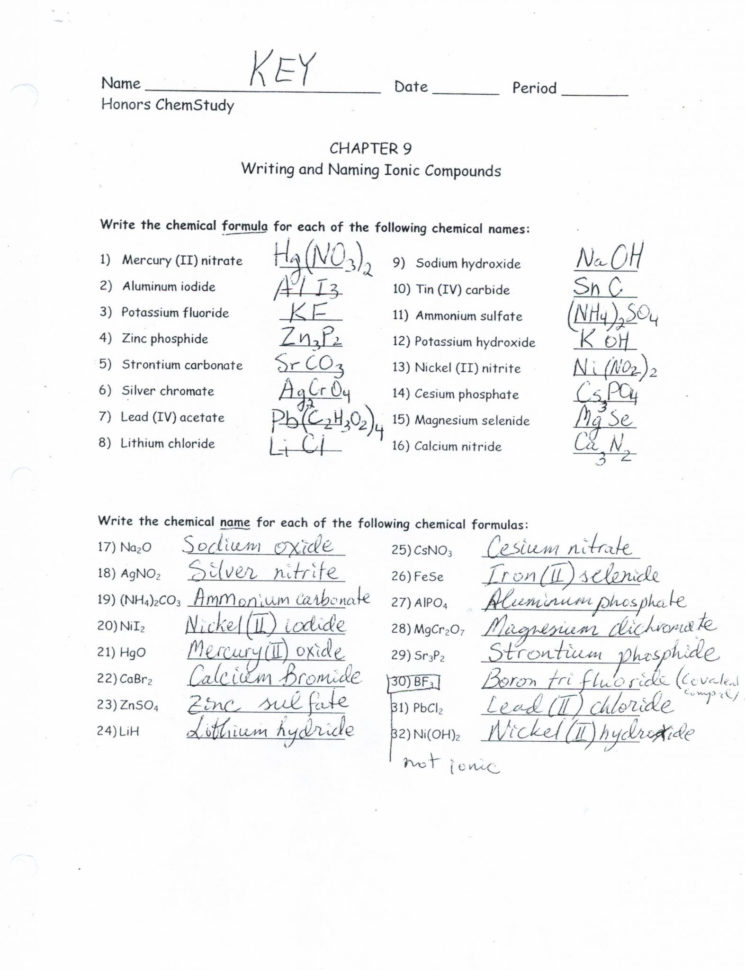 Name KEY Date ________ Period ________
Honors ChemStudy
CHAPTER 9
Writing and Naming Ionic Compounds
Write the chemical formula for each of the following chemical names:
1) Mercury (II) nitrate Hg(NO₃)₂
2) Aluminum iodide AlI₃
3) Potassium fluoride KF
4) Zinc phosphide Zn₃P₂
5) Strontium carbonate SrCO₃
6) Silver chromate Ag₂CrO₄
7) Lead (IV) acetate Pb(C₂H₃O₂)₄
8) Lithium chloride LiCl
9) Sodium hydroxide NaOH
10) Tin (IV) carbide SnC
11) Ammonium sulfate (NH₄)₂SO₄
12) Potassium hydroxide KOH
13) Nickel (II) nitrite Ni(NO₂)₂
14) Cesium phosphate Cs₃PO₄
15) Magnesium selenide MgSe
16) Calcium nitride Ca₃N₂
Write the chemical name for each of the following chemical formulas:
17) Na₂O Sodium oxide
18) AgNO₂ Silver nitrite
19) (NH₄)₂CO₃ Ammonium carbonate
20) NiI₂ Nickel (II) iodide
21) HgO Mercury (II) oxide
22) CaBr₂ Calcium Bromide
23) ZnSO₄ Zinc sulfate
24) LiH Lithium hydride
25) CsNO₃ Cesium nitrate
26) FeSe Iron (II) selenide
27) AlPO₄ Aluminum phosphate
28) MgCr₂O₇ Magnesium dichromate
29) Sr₃P₂ Strontium phosphide
30) BF₃ Boron tri fluoride
31) PbCl₂ Lead (II) chloride
32) Ni(OH)₂ Nickel (II) hydroxide
not ionic